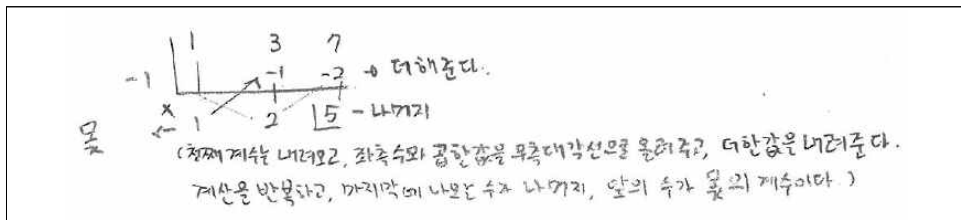 1 3 7
-1 -1 -2 → 더해준다.
몫 ← 1 2 5 - 나머지
(첫째계수는 내려오고, 좌측수와 곱한값을 우측대각선으로 올려주고, 더한값을 내려준다.
계산을 반복하고, 마지막에 나오는 수가 나머지, 앞의 수가 몫의 계수이다.)